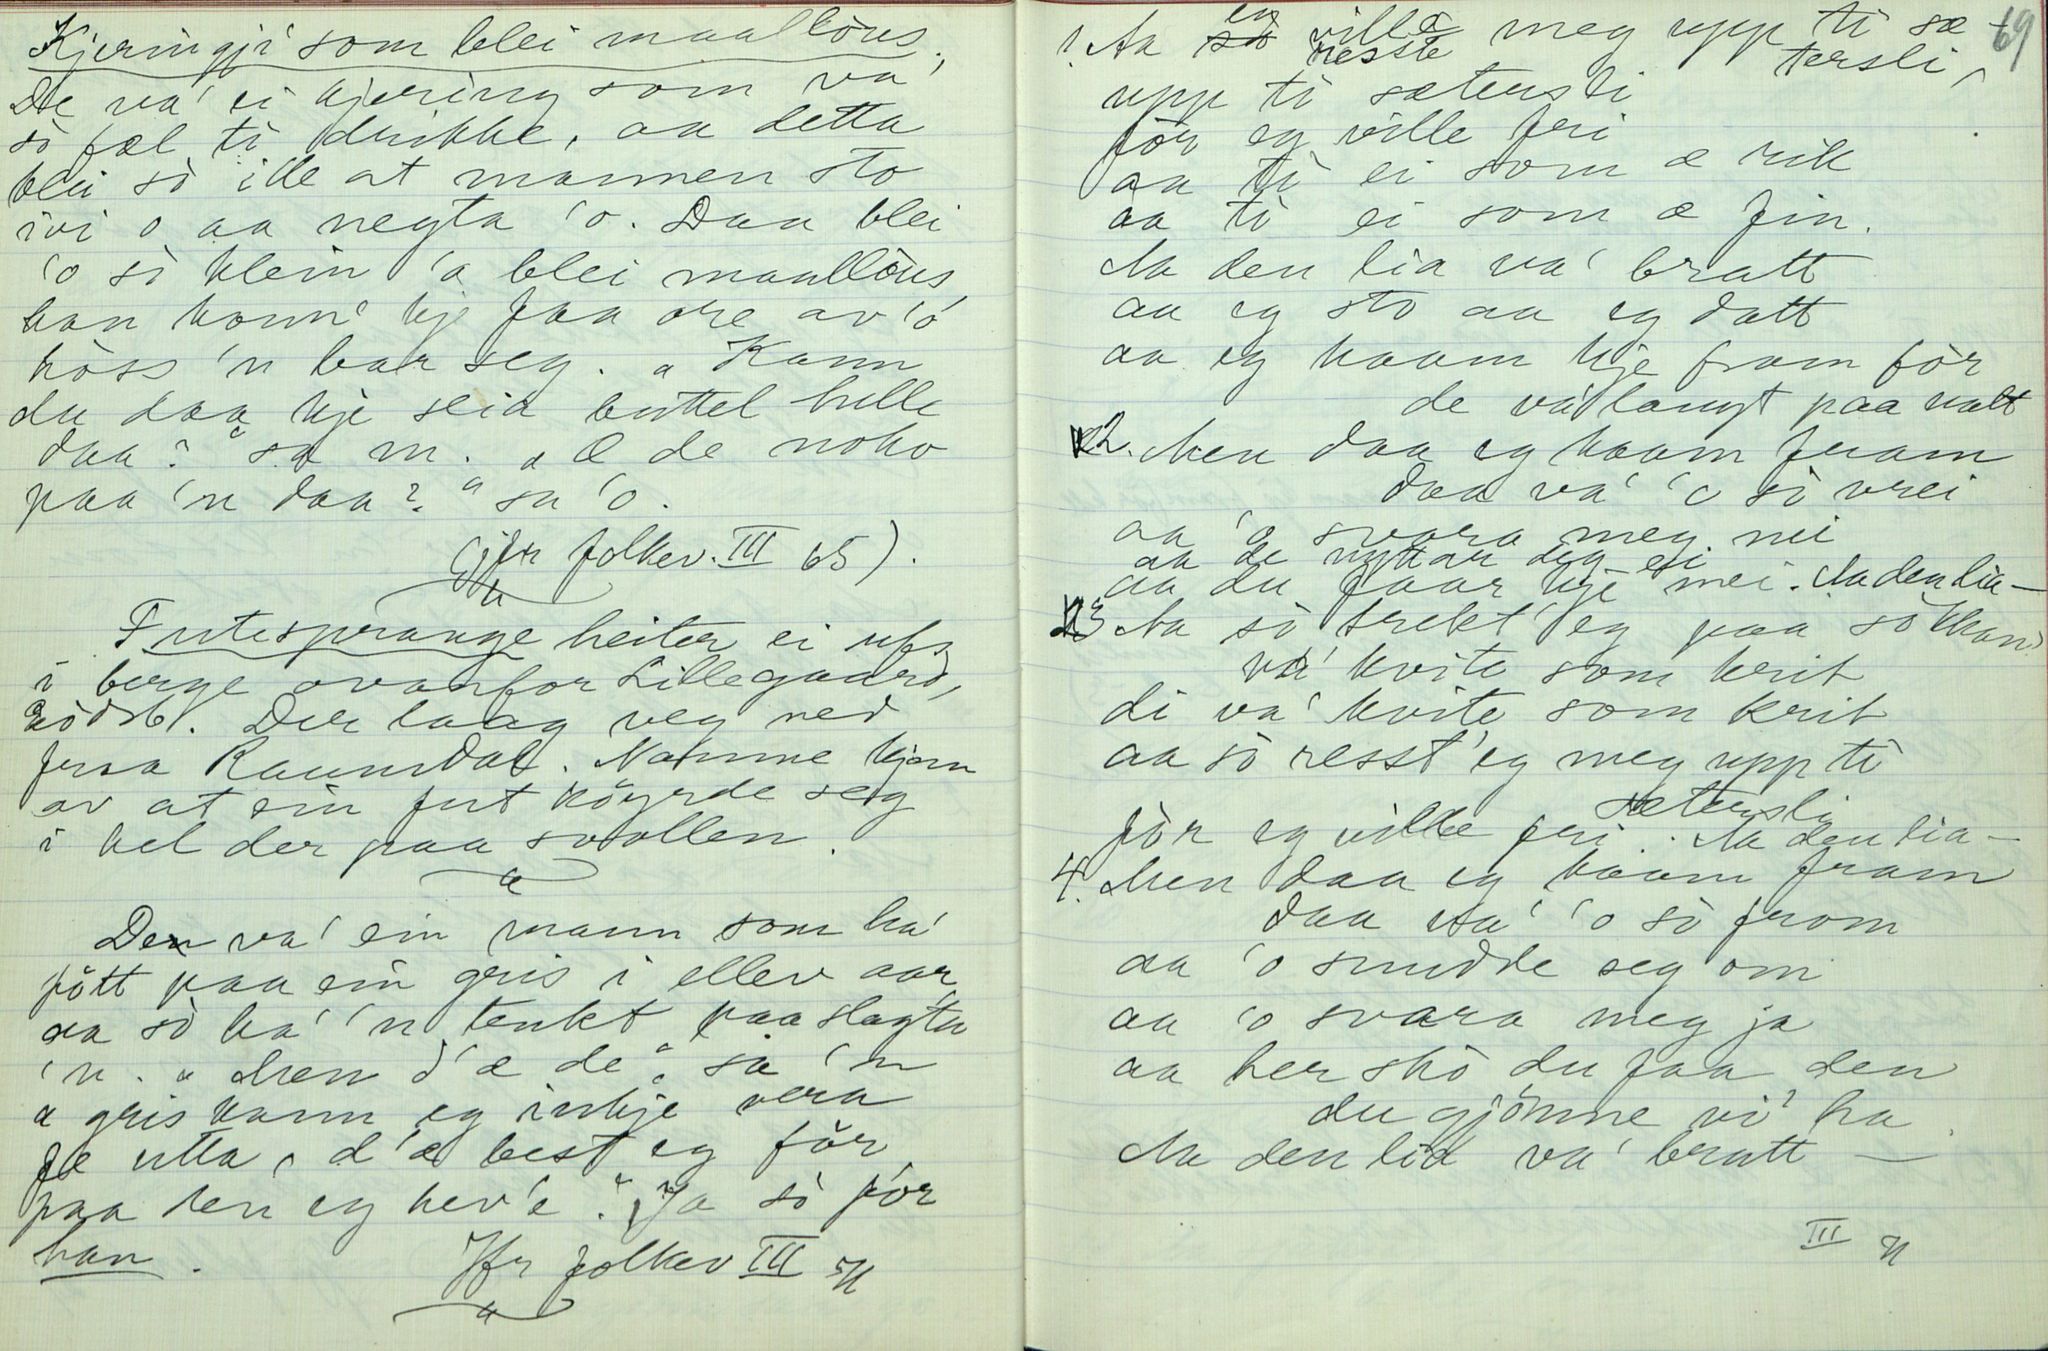 Kjeringji som blei maallöus.
De va' ei kjering som va'
sò fæl ti drikke, aa detta
blei sò ille at mannen sto
ivi 'o aa negta 'o. Daa blei
'o sò klein 'o blei maallöus,
han konn' kje faa ore av 'o
hòss 'n bar seg. "Kann
du daa kje seia buttel helle
daa?" sa 'n. "Æ de noko
paa 'n daa?" sa 'o.
(jfr folkev. III 65).
Futesprange heiter ei ufs
i berge ovanfor Lillegaard,
Bödst. Der laag veg ned
fraa Raundal. Namne kjem
av at ein fut köyrde seg
i hel der paa svollen.
Den va' ein mann som ha'
fött paa ein gris i ellev aar,
aa sò ha' 'n tenkt paa slagta
'n. "Men d'æ de" sa 'n
"gris kann eg inkje vera
fe utta, d'æ best eg fòr
paa den eg hev'e". "Ja sò fòr
han.
Jfr folkev III H
69
1. Aa eg ville meg upp ti sæ-
resste
tersli,
upp ti sætersli
fòr eg ville fri
aa ti ei som æ rik
aa ti ei som æ fin.
Aa den lia va' bratt
aa eg sto aa eg datt
aa eg kaam kje fram fòr
de va' langt paa natt
2. Men daa eg kaam fram
daa va' 'o sò vrei
aa 'o svara meg nei
aa de nyttar deg ei
aa du faar kje mei. Aa den lia –
3 Aa sò trekt' eg paa sokkan'
va' kvite som krit
di va' kvite som krit
aa sò resst' eg meg upp ti
sætersli
fòr eg ville fri. Aa den lia –
4. Men daa eg kaam fram
daa va' 'o sò from
aa 'o snudde seg om
aa 'o svara meg ja
aa her skò du faa den
du gjönne vi' ha.
Aa den lia va' bratt –
III H